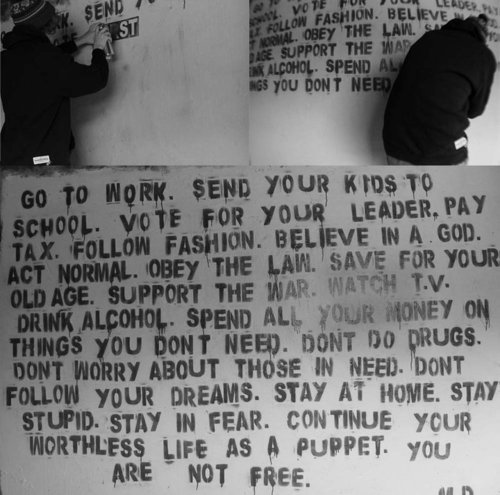 SEND
ST
VOTE FOR YOUR LEADER, PAY
FOLLOW FASHION. BELIEVE
NORMAL. OBEY THE LAW.
AGE. SUPPORT THE WAR
ALCOHOL. SPEND AL
NGS YOU DONT NEED
GO TO WORK. SEND YOUR KIDS TO
SCHOOL. VOTE FOR YOUR LEADER, PAY
TAX. FOLLOW FASHION. BELIEVE IN A GOD.
ACT NORMAL. OBEY THE LAW. SAVE FOR YOUR
OLD AGE. SUPPORT THE WAR. WATCH T.V.
DRINK ALCOHOL. SPEND ALL YOUR MONEY ON
THINGS YOU DONT NEED. DONT DO DRUGS.
DONT WORRY ABOUT THOSE IN NEED. DONT
FOLLOW YOUR DREAMS. STAY AT HOME. STAY
STUPID. STAY IN FEAR. CONTINUE YOUR
WORTHLESS LIFE AS A PUPPET. YOU
ARE NOT FREE.